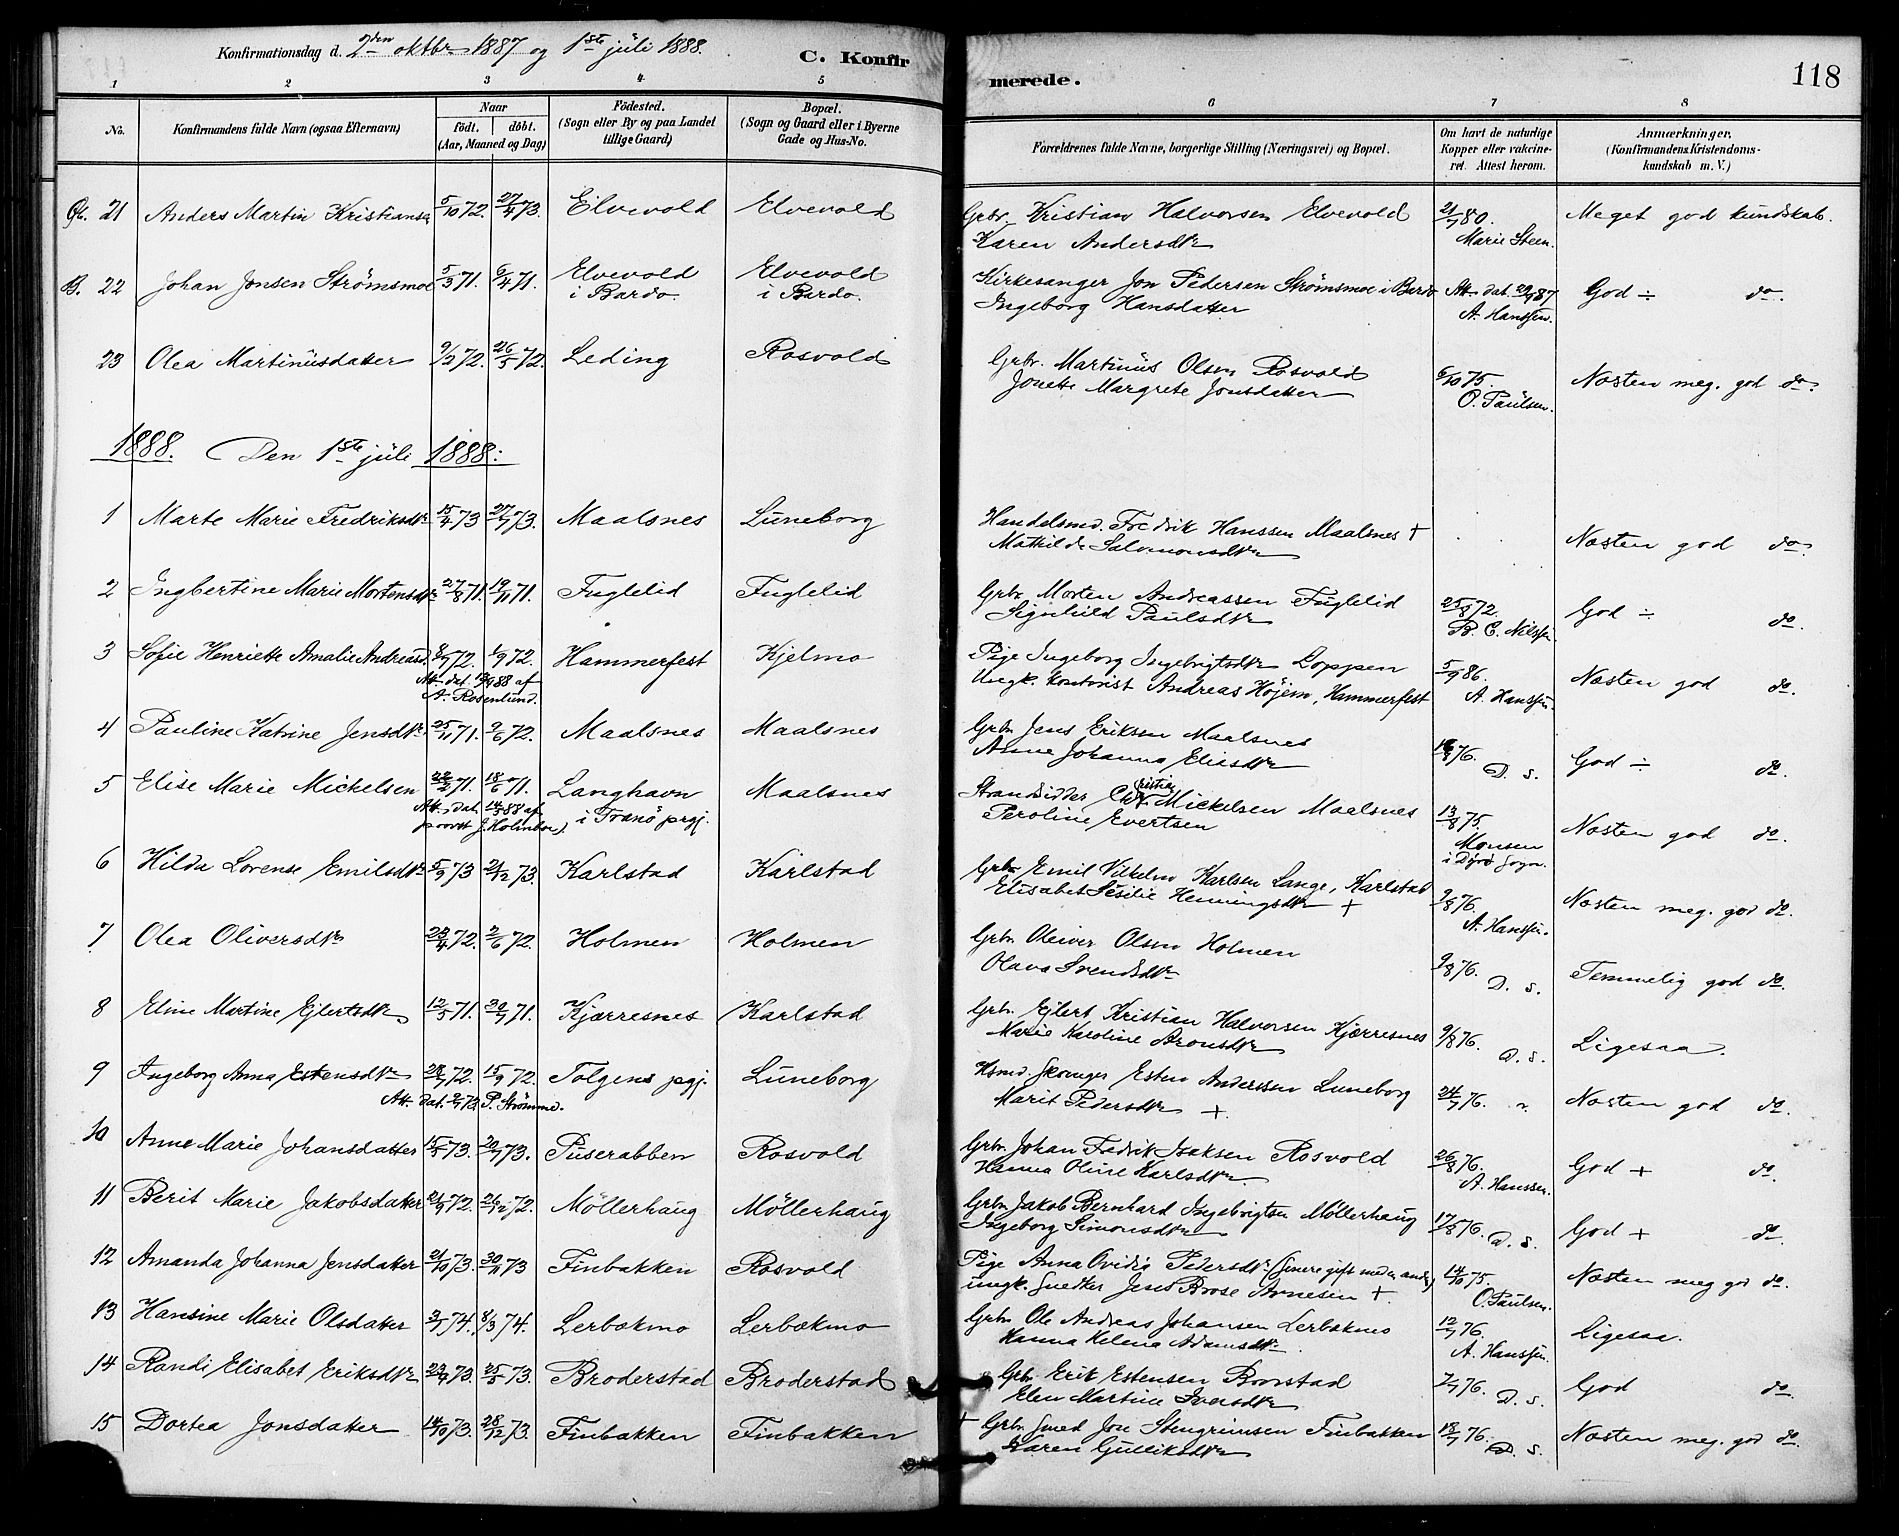 Konfirmationsdag d. 2den oktbr 1887 og 1ste juli 1888.
C. Konfirmerede.
118
1 2 3 4 5 6 7 8
No.
Konfirmandens fulde Navn (ogsaa Efternavn)
Naar
født. døbt.
(Aar, Maaned og Dag)
Fødested.
(Sogn eller By og paa Landet
tillige Gaard)
Bopæl.
(Sogn og Gaard eller i Byerne
Gade og Hus-No.
Forældrenes fulde Navne, borgerlige Stilling (Næringsvei) og Bopæl.
Om havt de naturlige
Kopper eller vakcine-
ret. Attest herom.
Anmærkninger.
(Konfirmandens Kristendoms-
kundskab m. V.)
Gl. 21 Anders Martin Kristiansn 5/10 72. 27/4 73. Elvevold Elvevold Grbr. Kristian Halvorsen Elvevold 21/7 80. Meget god kundskab.
Karen Andersdtr Marie Steen.
B. 22 Johan Jonsen Strømsmoe 5/3 71. 6/4 71. Elvevold Elvevold Kirkesanger Jon Pedersen Strømsmoe i Bardo Att. dat. 29/9 87 God ÷ do.
i Bardo. i Bardo. Ingeborg Hansdatter A. Hanssen.
23 Olea Martinusdatter 9/2 72. 26/5 72. Leding Rosvold Grbr. Martinus Olsen Rosvold 6/10 75. Næsten meg. god do.
Jonette Margrete Jonsdatter O. Paulsen.
1888. Den 1ste juli 1888:
1 Marte Marie Fredriksdtr 15/4 73 27/7 73. Maalsnes Luneborg Handelsmd. Fredrik Hanssen Maalsnes + Næsten god do.
Mathilde Salomonsdtr
2 Ingbertine Marie Mortensdtr 27/8 71. 19/11 71. Fuglelid Fuglelid Grbr. Morten Andreassen Fuglelid 25/8 72. God ÷ do.
Signhild Paulsdtr B. C. Nilssen
3 Sofie Henriette Amalie Andreasd. 8/7 72. 1/9 72. Hammerfest Kjelmo Pige Ingeborg Ingebrigtsdtr Loppen 5/9 86. Næsten god do.
A. Rosenlund. Ungk. kontorist Andreas Højem, Hammerfest A. Hanssen.
4 Pauline Katrine Jensdtr. 25/11 71. 9/6 72. Maalsnes Maalsnes Grbr. Jens Eriksen Maalsnes 16/8 76. God ÷ do.
Anne Johanna Eliesdtr D. s.
5 Elise Marie Mickelsen 22/2 71. 18/6 71. Langhavn Maalsnes Strandsidder Christian Mickelsen Maalsnes 13/8 75. Næsten god do.
Att. dat. 14/5 88 af i Tranø prgj. Peroline Evertsen Monsen
provst J. Holmboe. i Dyrø sogn.
6 Hilda Lorense Emilsdtr 5/9 73 21/12 73. Karlstad Karlstad Grbr Emil Vilhelm Karlsen Lange, Karlstad 9/8 76. Næsten meg. god do.
Elisabet Sesilie Henningsdtr + A. Hanssen.
7 Olea Oliversdtr 23/4 72. 2/6 72. Holmen Holmen Grbr. Oliver Olsen Holmen 9/8 76. Temmelig god do.
Olava Svendsdtr D. s.
8 Eline Martine Ejlertsdtr 12/5 71. 30/7 71. Kjærresnes Karlstad Grbr. Ejlert Kristian Halvorsen Kjærresnes 9/8 76. Ligesaa.
Marie Karoline Aronsdtr D. s.
9 Ingeborg Anna Estensdtr 28/7 72. 15/9 72. Tolgens prgj. Luneborg Esten Anderssen Luneborg 24/7 76. Næsten god do.
P. Strømme. Marit Pedersdtr +
10 Anne Marie Johansdatter 15/5 73. 20/7 73. Puserabben Rosvold Grbr. Johan Fredrik Isaksen Rosvold 26/8 76. God + do.
Hanna Oline Karlsdtr. A. Hanssen.
11 Berit Marie Jakobsdatter 21/9 72. 26/12 72. Möllerhaug Möllerhaug Grbr Jakob Bernhard Ingebrigtsen Møllerhaug 17/8 76. God + do.
Ingeborg Simonsdtr D. s.
12 Amanda Johanna Jensdatter 21/10 73. 30/11 73 Finbakken Rosvold Pige Anna Ovidia Pedersdtr (senere gift med en anden) 14/10 75. Næsten meg god do.
ungk. Snedker Jens Brose Arnesen + O. Paulsen.
13 Hansine Marie Olsdatter 3/1 74. 8/3 74. Lerbækmo Lerbækmo Grbr Ole Andreas Johansen Lerbækmo 12/7 76. Ligesaa.
Hanna Helena Adamsdtr A. Hanssen.
14 Randi Elisabet Eriksdtr 23/4 73. 25/5 73. Broderstad Broderstad Grbr. Erik Estensen Brorstad 7/7 76. God do.
Elen Martine Iversdtr D. s.
15 Dortea Jonsdatter 14/10 73. 28/12 73. Finbakken Finbakken + Grbr. Smed Jon Stengrimsen Finbakken 13/7 76. Næsten meg. god do.
Karen Gulliksdtr D. s.